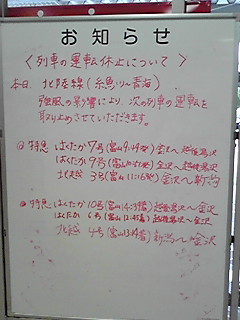 お知らせ
〈列車の運転休止について〉
本日 北陸線(糸魚川〜青海)
強風の影響により、次の列車の運転を
取り止めさせていただきます。
特急 はくたか 7号(富山 金沢〜越後湯沢
はくたか 9号(富山 金沢〜越後湯沢
北越 3号(富山 金沢〜新潟
特急 はくたか 10号(富山 越後湯沢〜金沢
はくたか 6号(富山 越後湯沢〜金沢
北越 4号(富山 新潟〜金沢